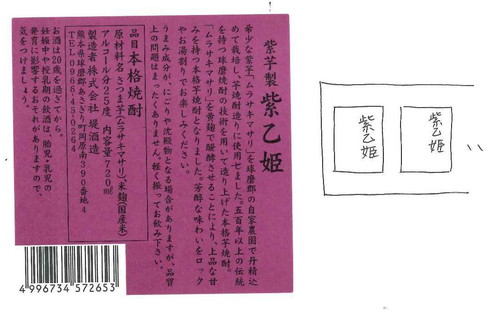 紫芋製 紫乙姫
希少な紫芋「ムラサキマサリ」を球磨郡の自家農園で丹精込
めて栽培し、芋焼酎造りに使用しました。五百年以上の伝統
を持つ球磨焼酎の技術を用いて造り上げた本格芋焼酎。
「ムラサキマサリ」を黄麹で醗酵させることにより、上品な甘
みを持つ本格芋焼酎となりました。芳醇な味わいをロック
やお湯割りでお楽しみください。
うまみ成分が、にごりや沈殿物となる場合がありますが、品質
上の問題はまったくありません。軽く振ってお飲み下さい。
品目 本格焼酎
原材料名 さつま芋(ムラサキマサリ)米麹(国産米)
アルコール分25度 内容量720ml
製造者 株式会社 堤酒造
熊本県球磨郡あさぎり町岡原南390番地4
TEL0966-45-0264
お酒は20歳を過ぎてから。
妊娠中や授乳期の飲酒は、胎児・乳児の
発育に影響するおそれがありますので、
気をつけましょう。
4 996734 572653
紫乙姫
紫乙姫